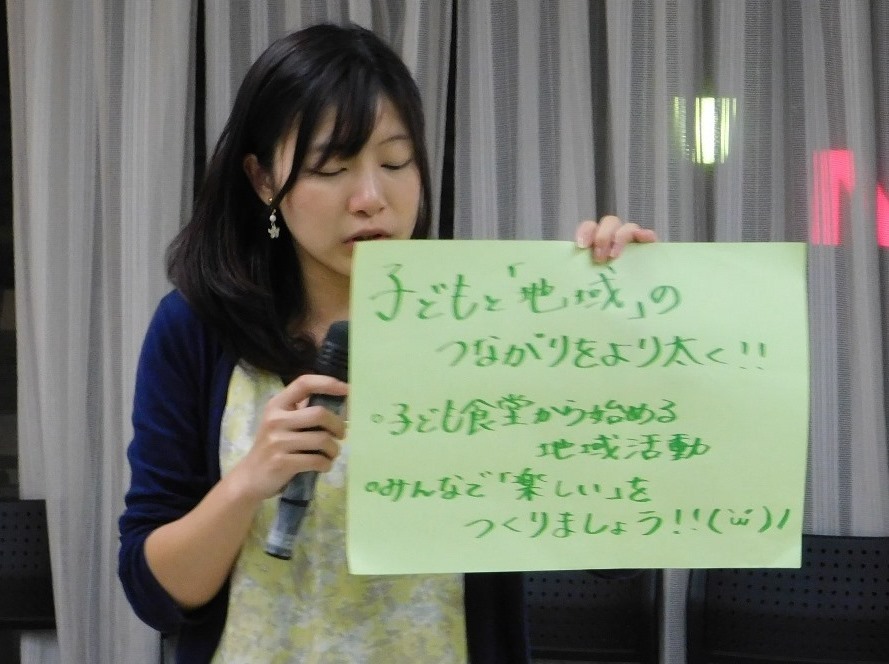 子どもと「地域」の
つながりをより太く!!
◦子ども食堂から始める
地域活動
◦みんなで「楽しい」を
つくりましょう!!(ü)ノ